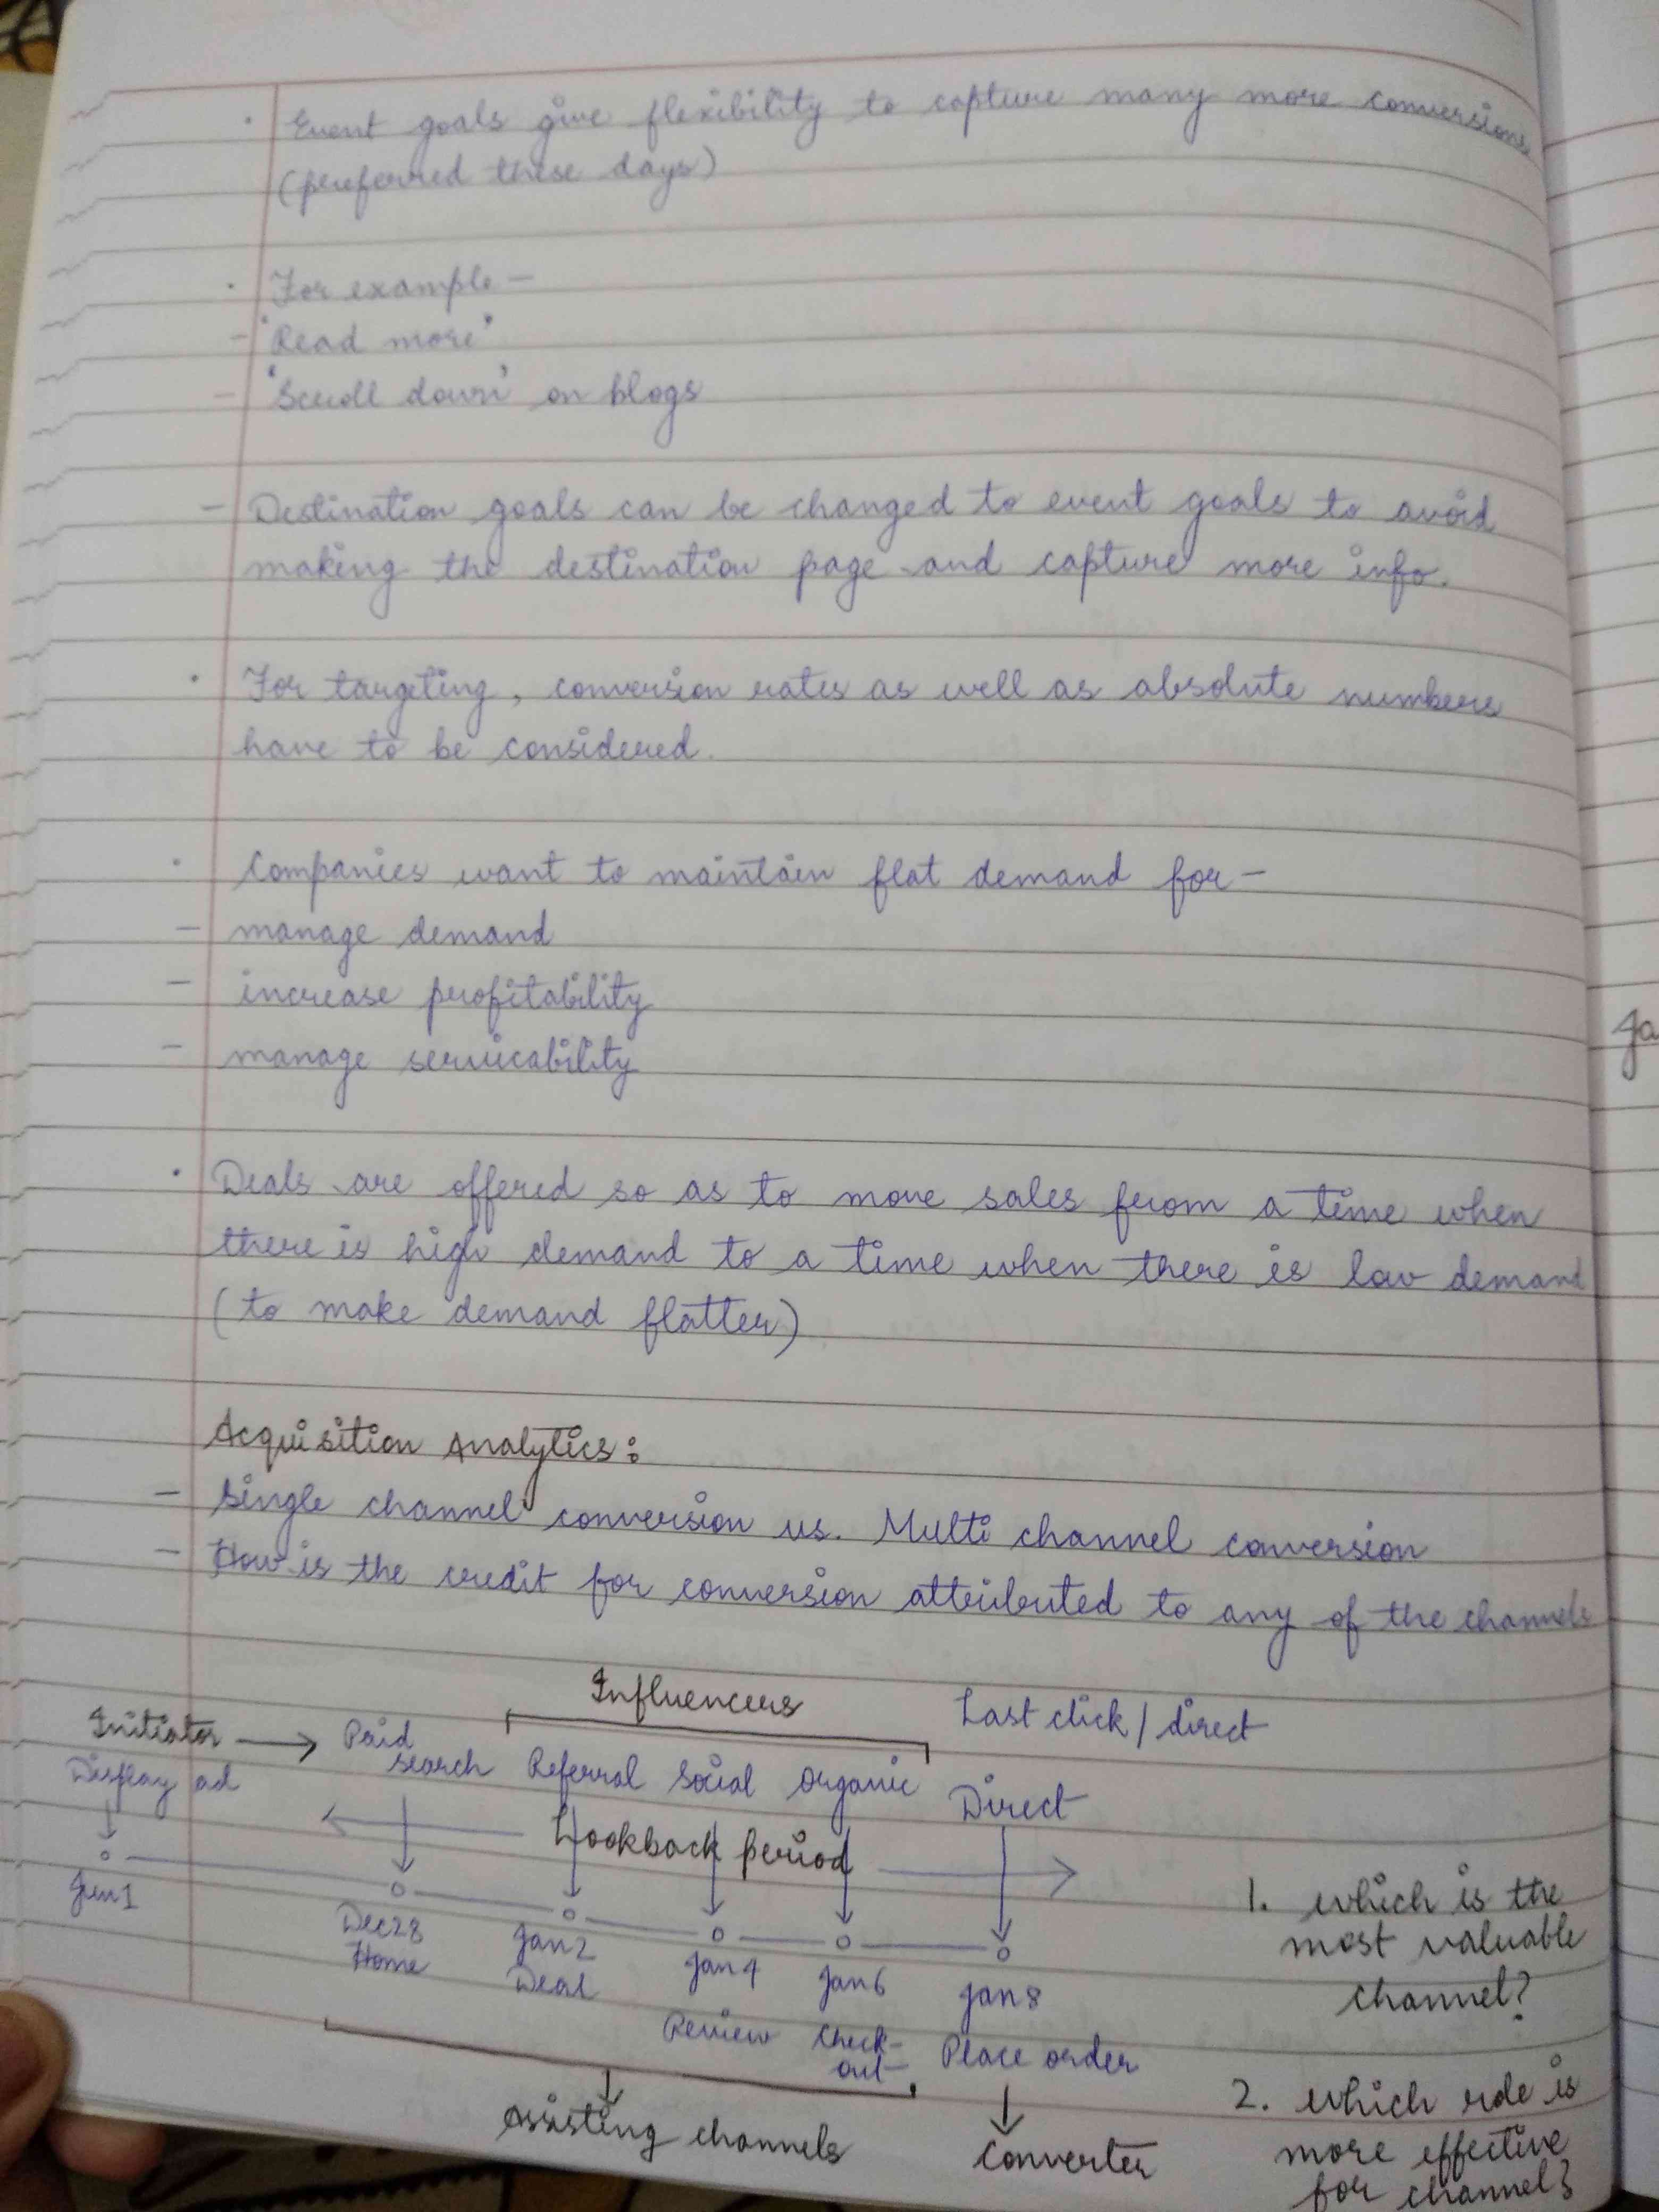 · Event goals give flexibility to capture many more conversions
(preferred these days)
· For example –
– "Read more"
– 'Scroll down' on blogs
– Destination goals can be changed to event goals to avoid
making the destination page and capture more info.
· For targeting, conversion rates as well as absolute numbers
have to be considered.
· Companies want to maintain flat demand for –
– manage demand
– increase profitability
– manage servicability
· Deals are offered so as to move sales from a time when
there is high demand to a time when there is low demand
(to make demand flatter)
Acquisition Analytics:
– Single channel conversion vs. Multi channel conversion
– How is the credit for conversion attributed to any of the channels
Influencers
Last click / direct
Initiator → Paid search
Display ad
Referral Social Organic
Direct
Lookback period
Jun 1
Dec 28 Jan 2 Jan 4 Jan 6 Jan 8
Home Deal Review Check-out Place order
Assisting channels
Converter
1. which is the
most valuable
channel?
2. which role is
more effective
for channel?
Ja